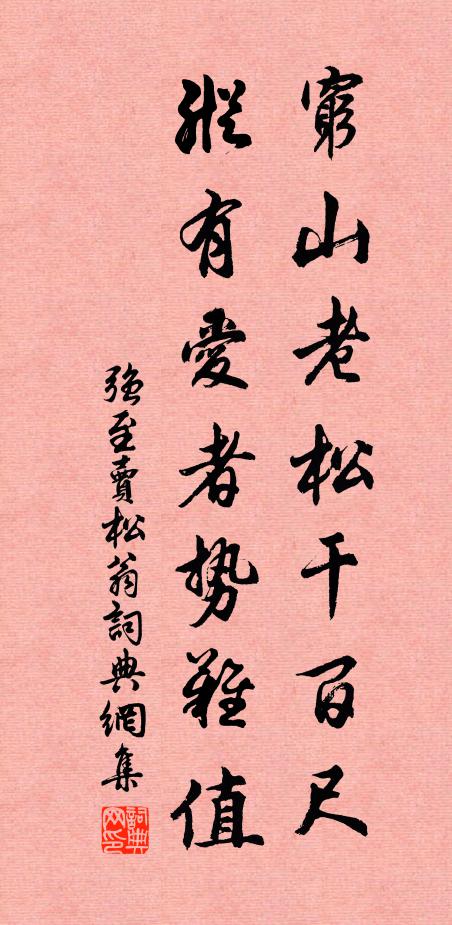 窮山老松千百尺
縱有愛者勢難值
強至賣松翁詞典網集
詞典网印